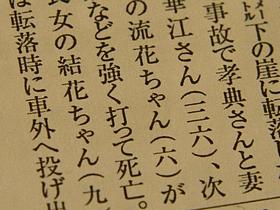 メートル下の崖に転落し
事故で孝典さんと妻
華江さん(三六)、次
の流花ちゃん(六)が
などを強く打って死亡。
長女の結花ちゃん(九
は転落時に車外へ投げ出